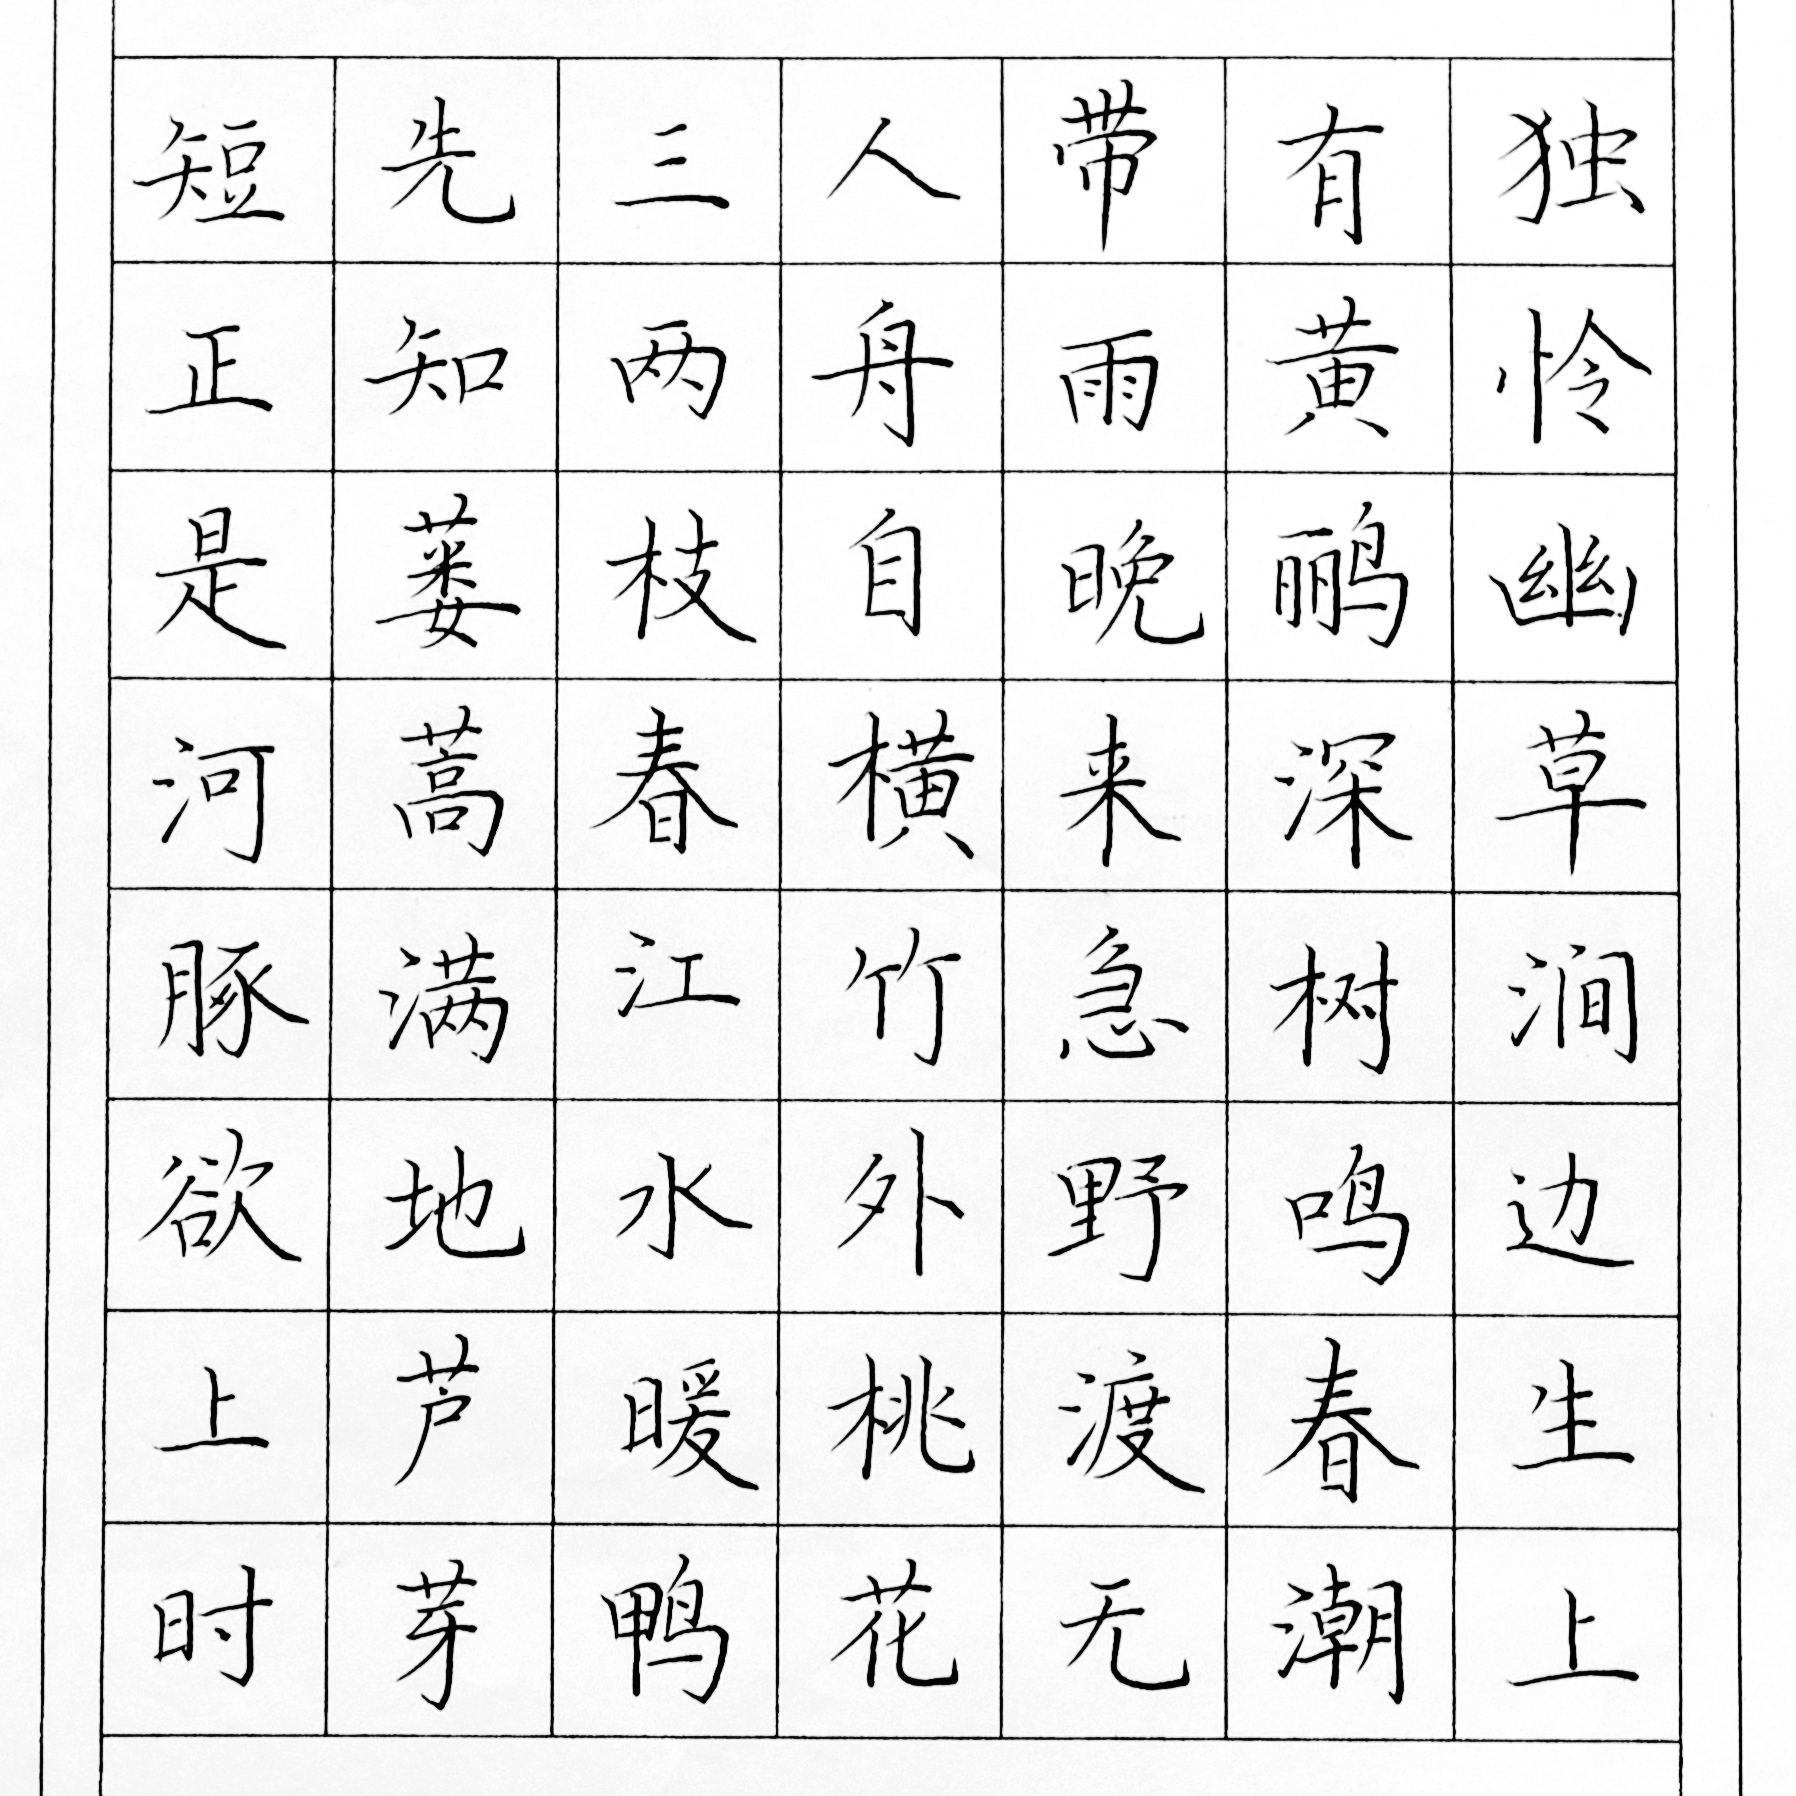 独怜幽草涧边生上
有黄鹂深树鸣春潮
带雨晚来急野渡无
人舟自横竹外桃花
三两枝春江水暖鸭
先知蒌蒿满地芦芽
短正是河豚欲上时